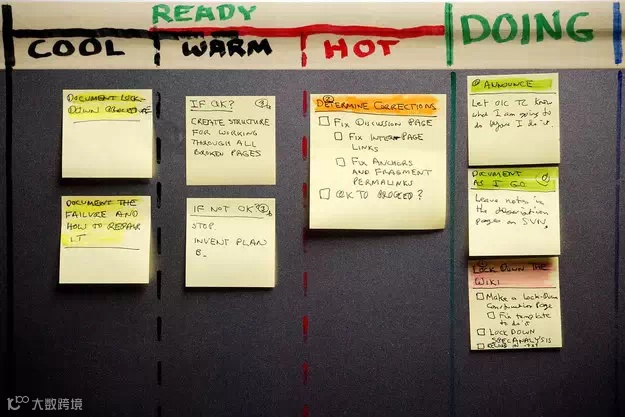 READY
COOL
WARM
HOT
DOING
DOCUMENT LOCK-
DOWN
DOCUMENT THE
FAILURE AND
HOW TO REPAIR
IT
IF OK?
CREATE STRUCTURE
FOR WORKING
THROUGH ALL
BROKEN PAGES
IF NOT OK?
STOP
INVENT PLAN
B.
DETERMINE CORRECTIONS
FIX DISCUSSION PAGE
FIX INTER-PAGE
LINKS
FIX ANCHORS
AND FRAGMENT
PERMALINKS
OK TO PROCEED?
ANNOUNCE
Let OIC TC know
what I am going to
do before I do it.
DOCUMENT
AS I GO
Leave notes in
the
pages on SVN.
LOCK DOWN THE
WIKI
Make a Lock-Down
Construction Page
Fix template
to do it
LOCK DOWN
SPEC ANALYSIS
大数跨境